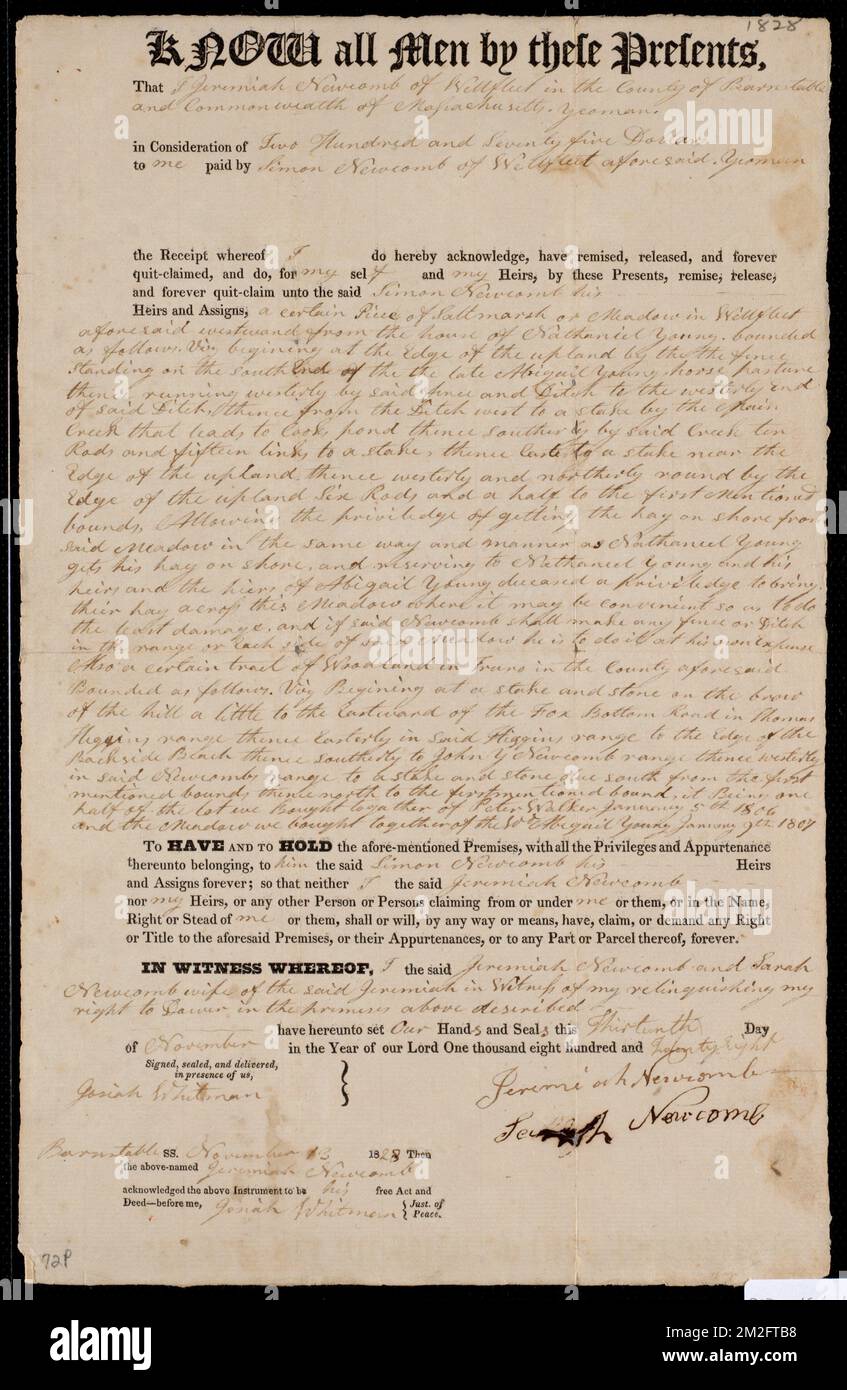 1828
KNOW all Men by theſe Preſents,
That I Jeremiah Newcomb of Wellfleet in the County of Barnstable
and Commonwealth of Massachusetts. Yeoman.
in Consideration of Two Hundred and Seventy five Dollars
to me paid by Simon Newcomb of Wellfleet aforesaid. Yeoman
the Receipt whereof I do hereby acknowledge, have remised, released, and forever
quit-claimed, and do, for my self and my Heirs, by these Presents, remise, release,
and forever quit-claim unto the said Simon Newcomb his
Heirs and Assigns, a certain Piece of Saltmarsh or Meadow in Wellfleet
aforesaid westward from the house of Nathaniel Young. bounded
as follows. Viz begining at the Edge of the upland by the the fence
standing on the south End of the the late Abigail Young horse pasture
thence running westerly by said fence and Ditch to the westerly end
of said Ditch, thence from the Ditch west to a stake by the Main
Creek that leads to Cooks pond thence southerly by said Creek ten
Rods and fifteen links to a stake, thence Easterly to a stake near the
Edge of the upland thence westerly and northerly round by the
Edge of the upland Six Rods and a half to the first Mentioned
bounds, Allowing the priviledge of getting the hay on shore from
said Meadow in the same way and manner as Nathaniel Young
gets his hay on shore, and reserving to Nathaniel Young and his
heirs and the hiers of Abigail Young deceased a priviledge to bring
their hay across this Meadow where it may be convenient so as to do
the least damage, and if said Newcomb shall make any fence or Ditch
in the range or Each side of said Meadow he is to do it at his own expense
Also a certain tract of Woodland in Truro in the County aforesaid
Bounded as follows. Viz Begining at a stake and stone on the brow
of the hill a little to the Eastward of the Fox Bottom Road in Thomas
Higgins range thence Easterly in said Higgins range to the Edge of the
Backside Beach thence southerly to John Y Newcomb range thence westerly
in said Newcombs range to a stake and stone due south from the first
mentioned bounds thence north to the first mentioned bound, it Being one
half of the lot we Bought together of Peter Walker January 5th 1806
and the Meadow we bought together of the Wd Abigail Young January 9th 1807
To HAVE AND TO HOLD the afore-mentioned Premises, with all the Privileges and Appurtenance
thereunto belonging, to him the said Simon Newcomb his Heirs
and Assigns forever; so that neither I the said Jeremiah Newcomb
nor my Heirs, or any other Person or Persons claiming from or under me or them, or in the Name,
Right or Stead of me or them, shall or will, by any way or means, have, claim, or demand any Right
or Title to the aforesaid Premises, or their Appurtenances, or to any Part or Parcel thereof, forever.
IN WITNESS WHEREOF, I the said Jeremiah Newcomb and Sarah
Newcomb wife of the said Jeremiah in Witness of my relinquishing my
right to Dower in the premises above described
have hereunto set Our Hands and Seals this Thirtenth Day
of November in the Year of our Lord One thousand eight hundred and Twenty Eight
Signed, sealed, and delivered,
in presence of us,
Josiah Whitman
Jeremiah Newcomb
Newcomb
Barnstable SS. November 13 1828 Then
the above-named Jeremiah Newcomb
acknowledged the above Instrument to be his free Act and
Deed—before me, Josiah Whitman Just. of
Peace.
72P
alamy
Image ID: 2M2FTB8
www.alamy.com